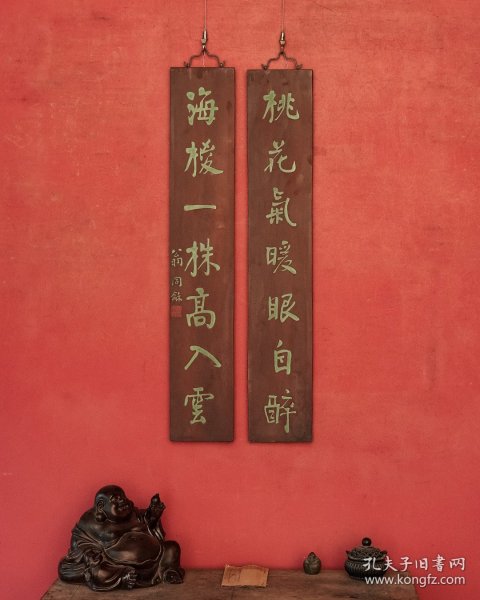 桃花氣暖眼自醉
海椶一株高入雲
翁同龢
孔夫子旧书网
www.kongfz.com